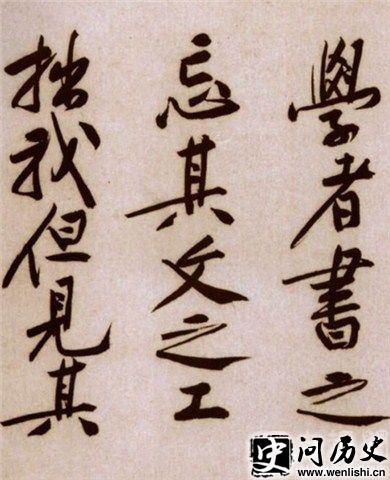 學者書之
忘其文之工
拙我但見其
史问历史
www.wenlishi.cn